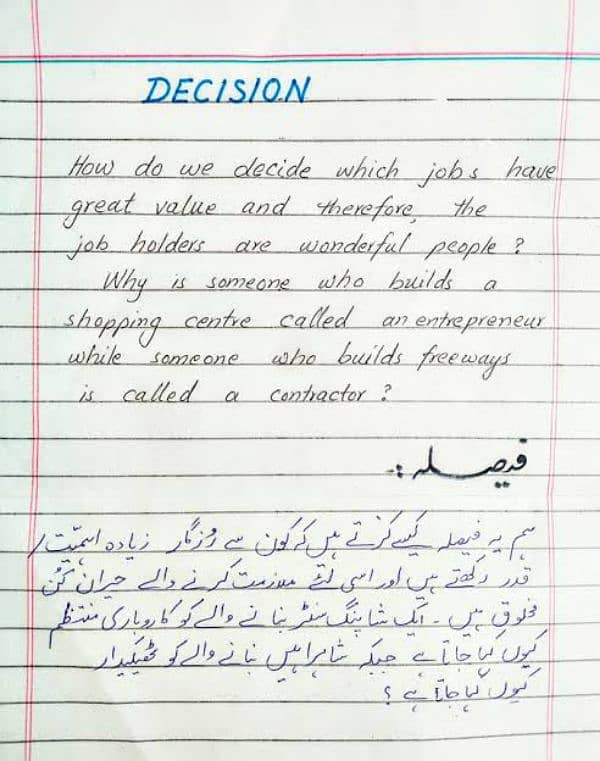 DECISION
How do we decide which jobs have
great value and therefore, the
job holders are wonderful people ?
Why is someone who builds a
shopping centre called an entrepreneur
while someone who builds freeways
is called a contractor ?
فیصلہ :-
ہم یہ فیصلہ کیسے کرتے ہیں کہ کون سے روزگار زیادہ اہمیّت/
قدر رکھتے ہیں اور اسی لئے ملازمت کرنے والے حیران کُن
مخلوق ہیں۔ ایک شاپنگ سنٹر بنانے والے کو کاروباری منتظم
کیوں کہا جاتا ہے جبکہ شاہراہیں بنانے والے کو ٹھیکیدار
کیوں کہا جاتا ہے ؟